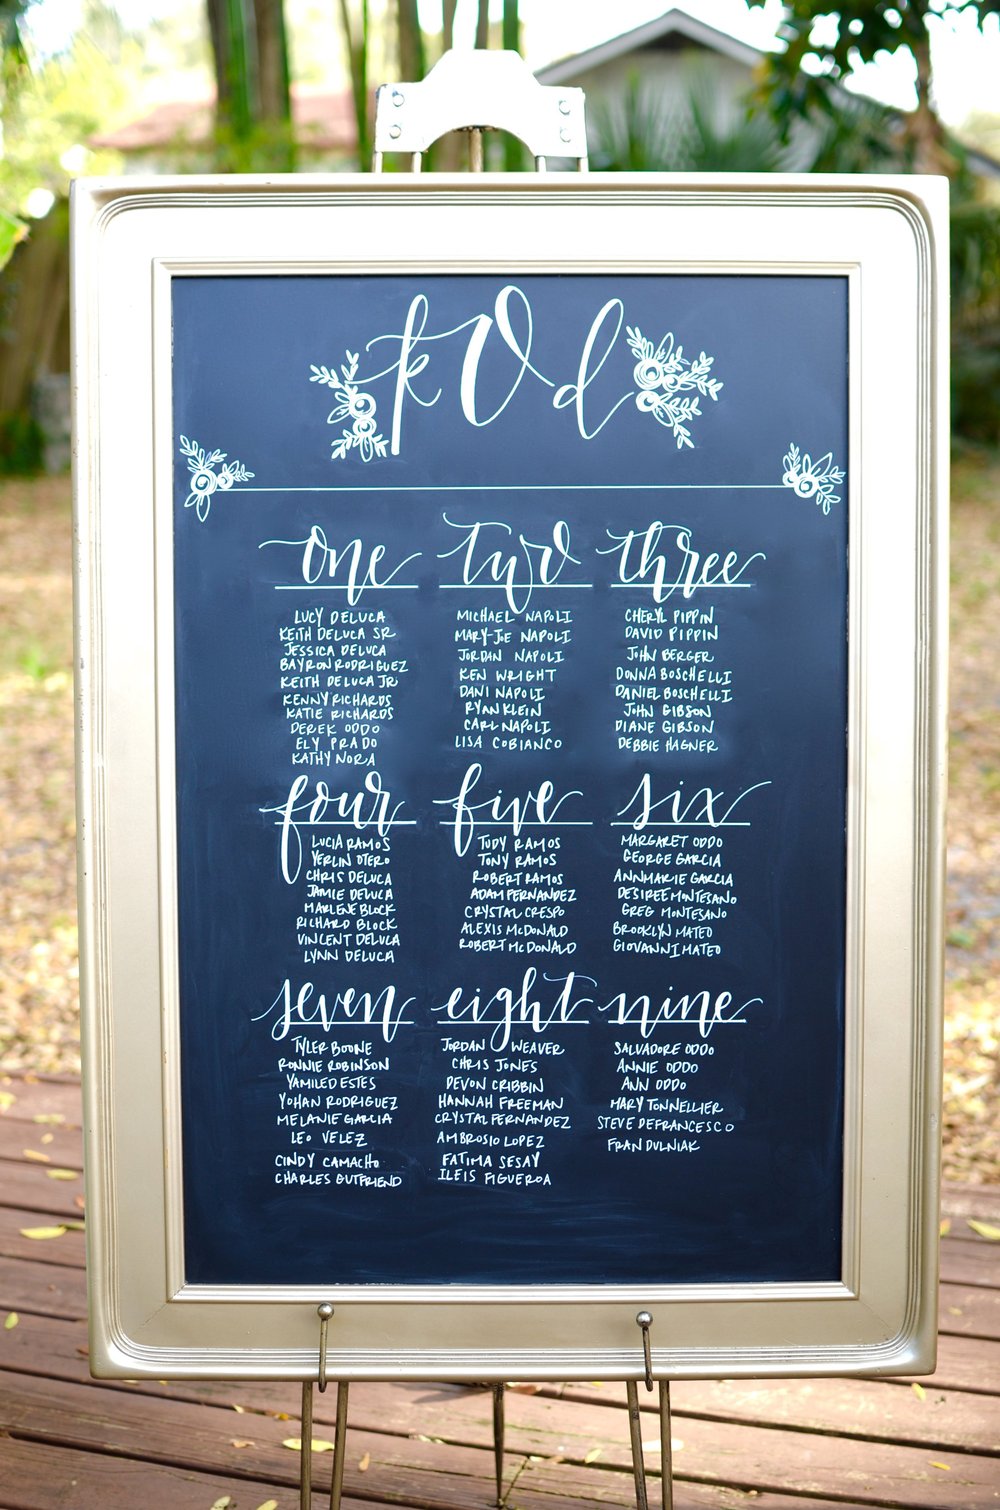 k O d
one
LUCY DELUCA
KEITH DELUCA SR
JESSICA DELUCA
BAYRON RODRIGUEZ
KEITH DELUCA JR
KENNY RICHARDS
KATIE RICHARDS
DEREK ODDO
ELY PRADO
KATHY NORA
two
MICHAEL NAPOLI
MARY-JOE NAPOLI
JORDAN NAPOLI
KEN WRIGHT
DANI NAPOLI
RYAN KLEIN
CARL NAPOLI
LISA COBIANCO
three
CHERYL PIPPIN
DAVID PIPPIN
JOHN BERGER
DONNA BOSCHELLI
DANIEL BOSCHELLI
JOHN GIBSON
DIANE GIBSON
DEBBIE HAGNER
four
LUCIA RAMOS
YERLIN OTERO
CHRIS DELUCA
JAMIE DELUCA
MARLENE BLOCK
RICHARD BLOCK
VINCENT DELUCA
LYNN DELUCA
five
JUDY RAMOS
TONY RAMOS
ROBERT RAMOS
ADAM FERNANDEZ
CRYSTAL CRESPO
ALEXIS McDONALD
ROBERT McDONALD
six
MARGARET ODDO
GEORGE GARCIA
ANNMARIE GARCIA
DESIREE MONTESANO
GREG MONTESANO
BROOKLYN MATEO
GIOVANNI MATEO
seven
TYLER BOONE
RONNIE ROBINSON
YAMILED ESTES
YOHAN RODRIGUEZ
MELANIE GARCIA
LEO VELEZ
CINDY CAMACHO
CHARLES GUTFRIEND
eight
JORDAN WEAVER
CHRIS JONES
DEVON CRIBBIN
HANNAH FREEMAN
CRYSTAL FERNANDEZ
AMBROSIO LOPEZ
FATIMA SESAY
ILEIS FIGUEROA
nine
SALVADORE ODDO
ANNIE ODDO
ANN ODDO
MARY TONNELLIER
STEVE DEFRANCESCO
FRAN DULNIAK